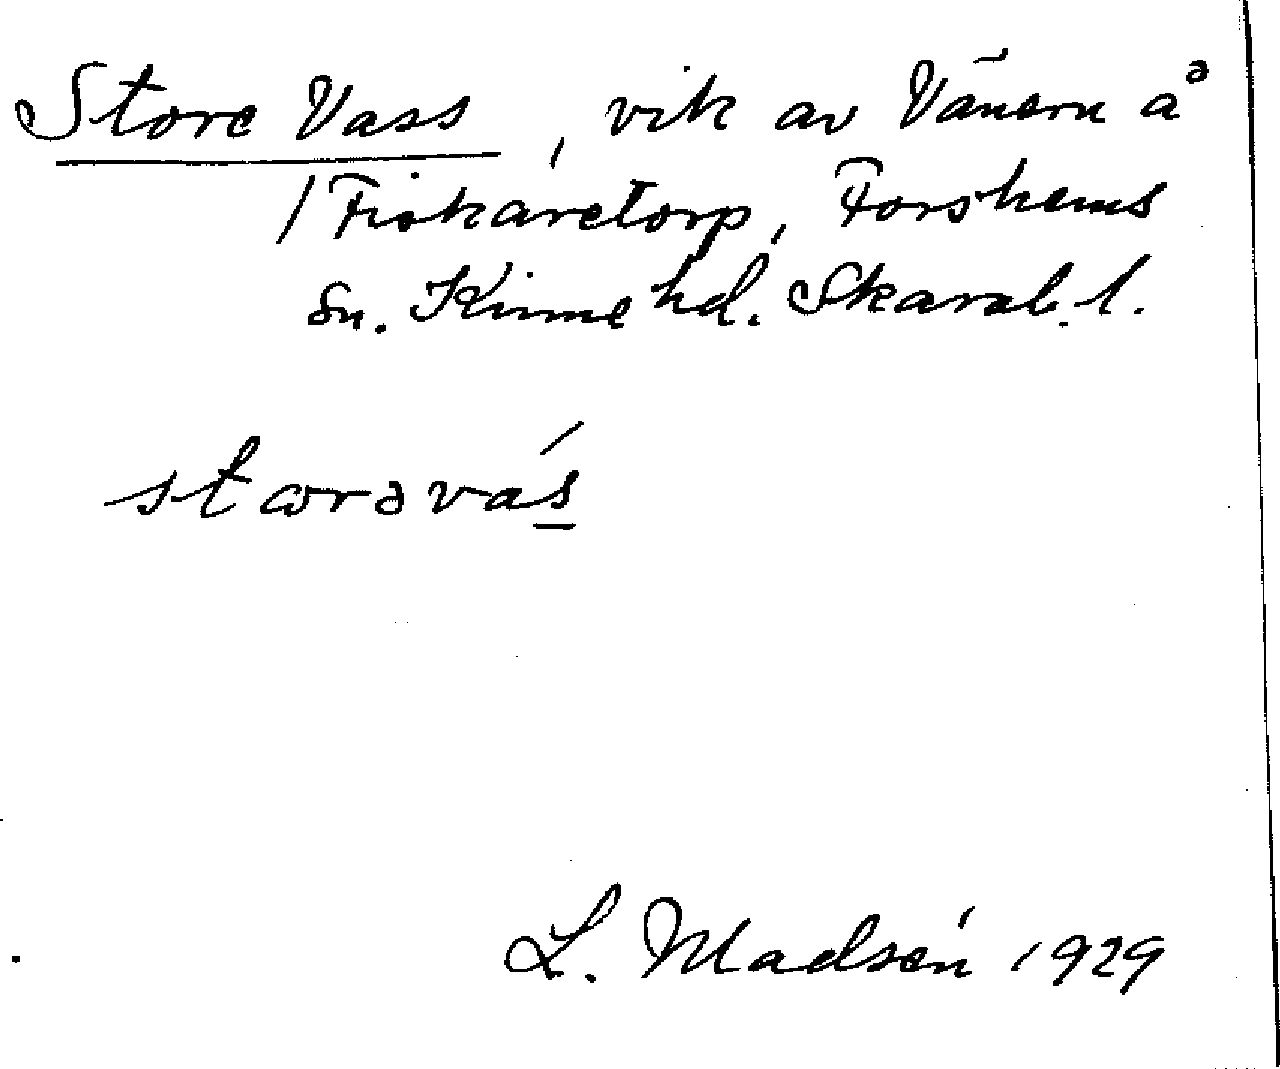 Store Vass, vik av Vänern å
/ Fiskaretorp, Forshems
sn. Kinne hd. Skarab. l.
stωrəvás̲
L. Madsén 1929